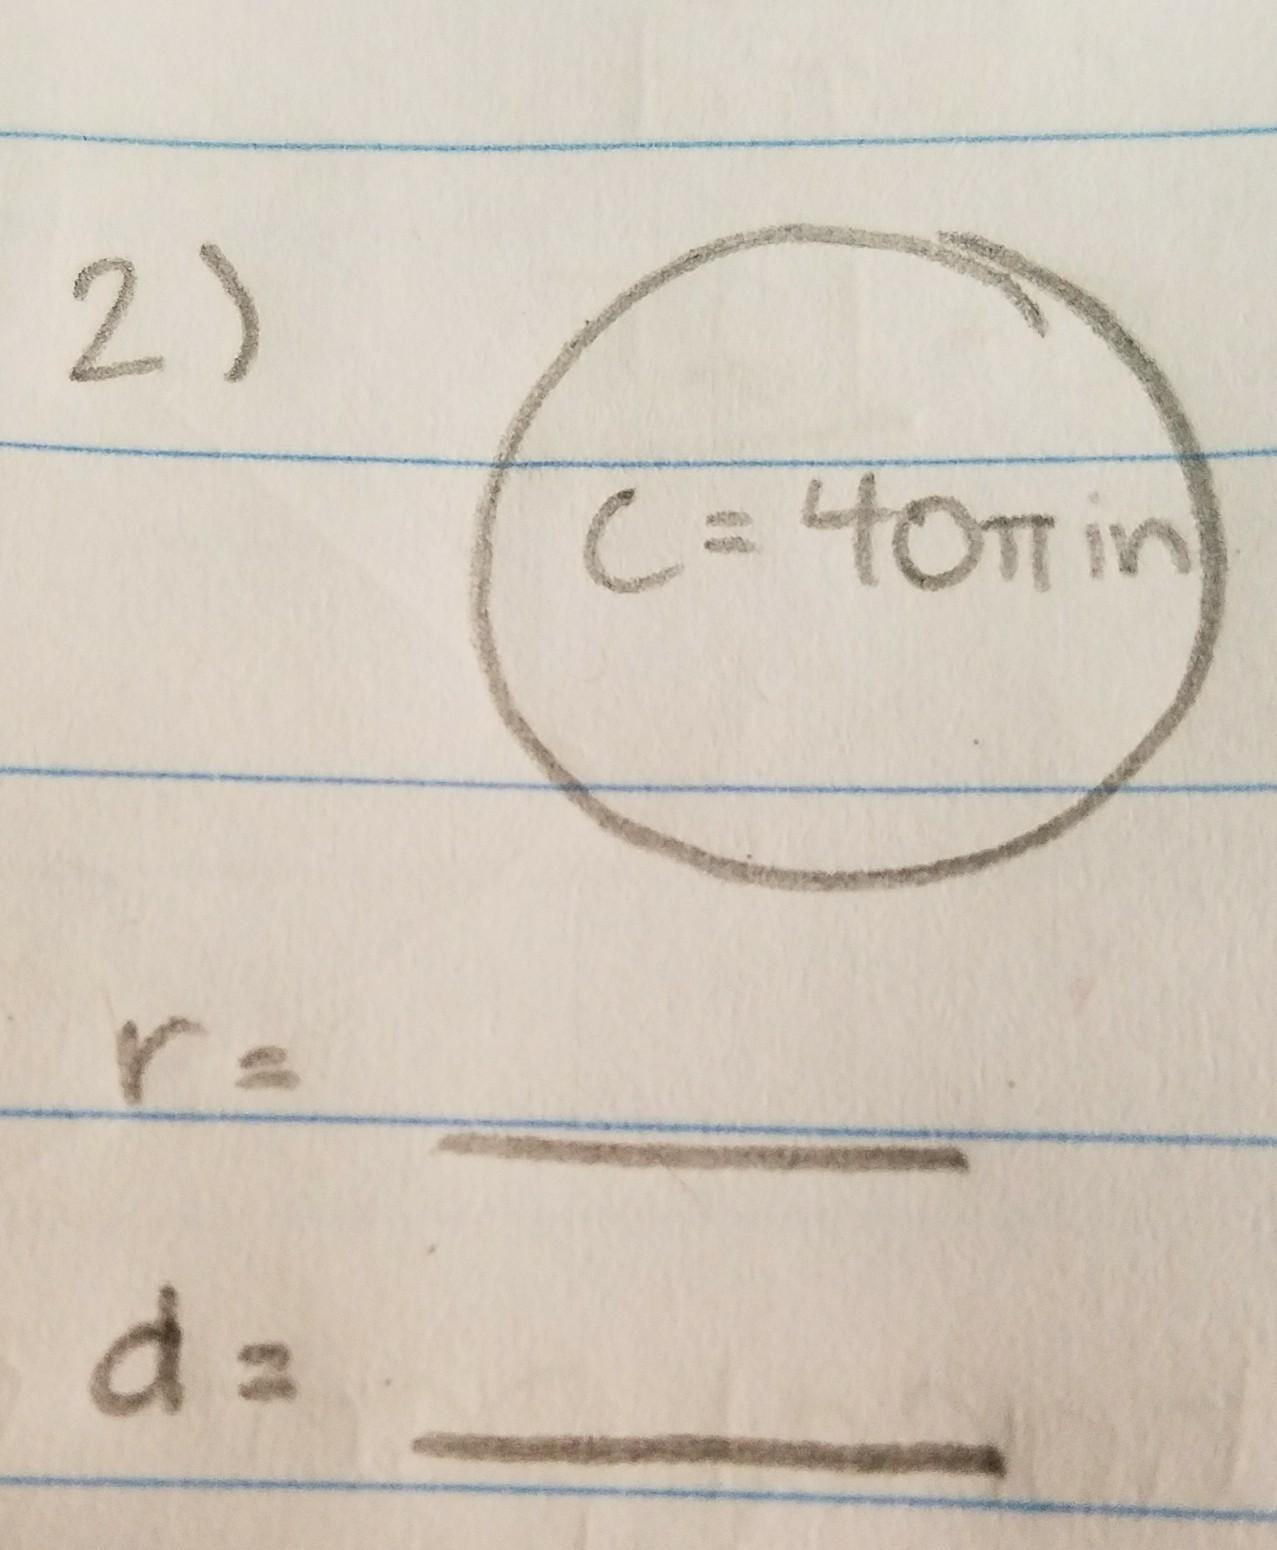 2)
C = 40π in
r =
d =